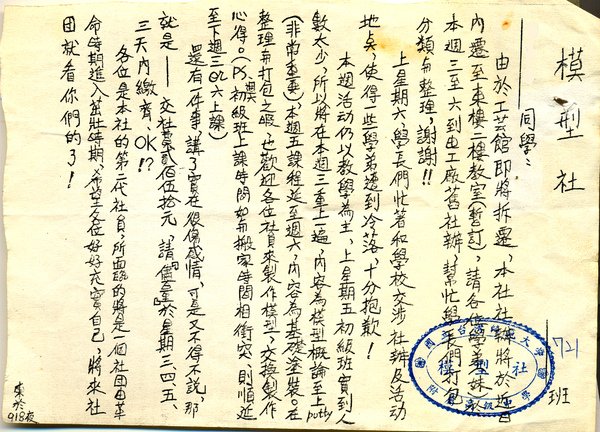 模型社
721班
同學：
由於工藝館即將拆遷，本社社辦將於近日
內遷至東樓二樓教室（暫訂），請各位學弟妹於
本週三至六到由工廠舊社辦，幫忙學長們打包
分類與整理，謝謝!!
上星期六，學長們忙著和學校交涉社辦及活動
地点，使得一些學弟遭到冷落，十分抱歉！
本週活動仍以教學為主，上星期五初級班實到人
數太少，所以將在本週三重上一遍，內容為模型概論至上putty
（非常重要），本週五課程延至週六，內容為基礎塗裝。在
整理與打包之暇，也歡迎各位社員來製作模型，交換製作
心得。（P.S.初級班上課時間如與搬家時間相衝突，則順延
至下週三OR六上課）
還有一件事，講了實在很傷感情，可是又不得不說，那
就是——交社費貳佰伍拾元，請『儘量』於星期三、四、五、
三天內繳齊，OK!?
各位是本社的第二代社員，所面臨的將是一個社團由革
命時期進入茁壯時期，希望各位好好充實自己，將來社
團就看你們的了！
918夜
模型社